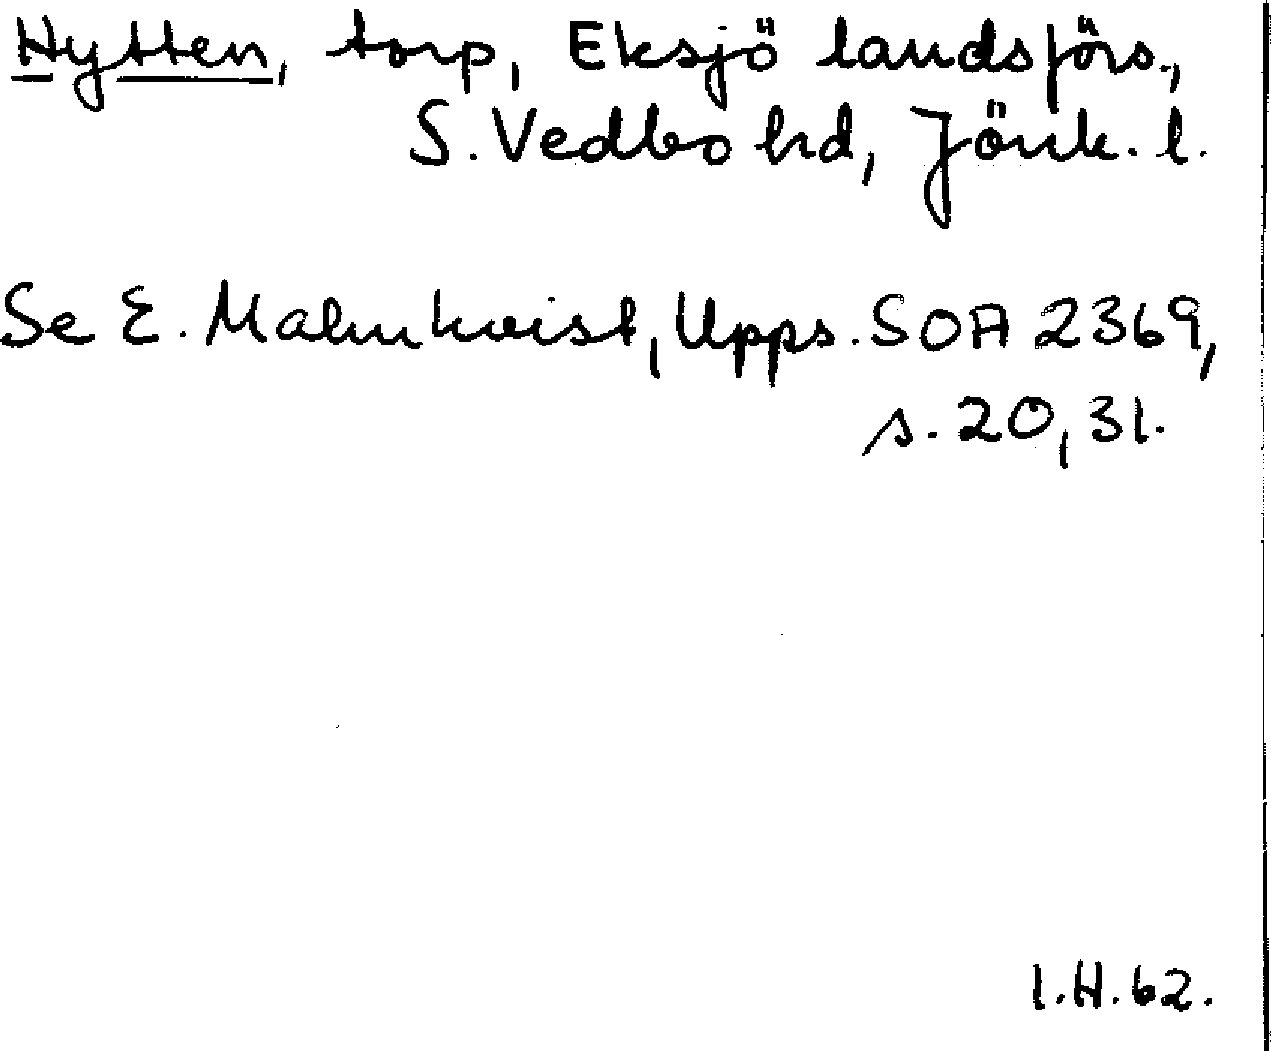 Hytten, torp, Eksjö landsförs.,
S. Vedbo hd, Jönk. l.
Se E. Malmkvist, Upps. SOA 2369,
s. 20, 31.
I.H. 62.